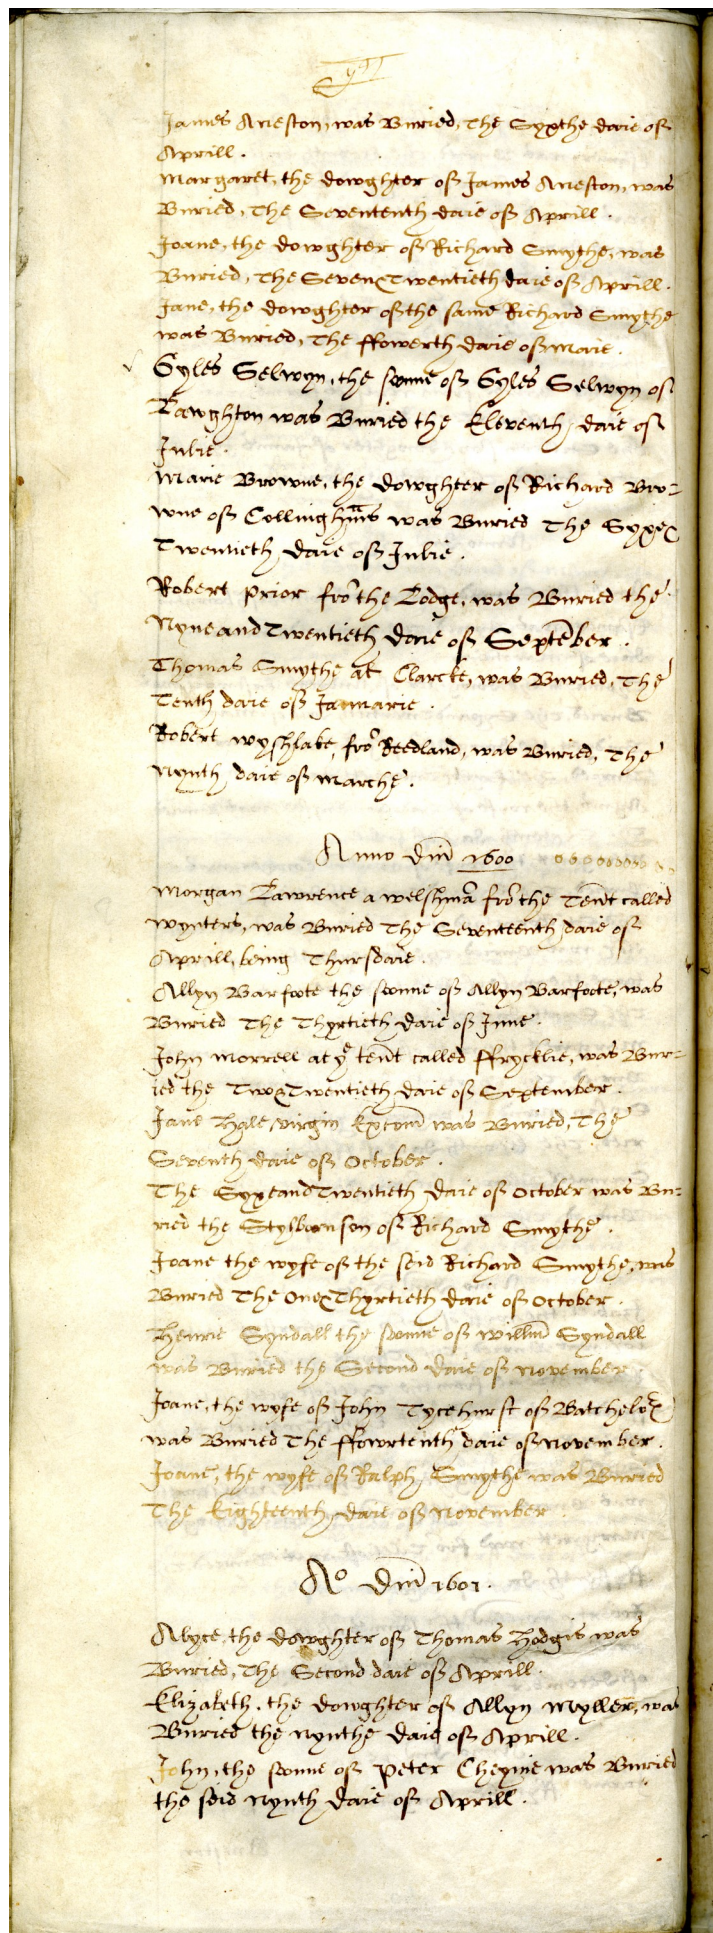 James Aneston, was Buried, The Syxthe daie off
Aprill.
Margaret, the dowghter off James Aneston, was
Buried, The Sevententh daie off Aprill.
Joane, the dowghter off Richard Smythe, was
Buried, The Seven & Twentieth daie off Aprill.
Jane, the dowghter off the same Richard Smythe
was Buried, The ffowerth daie off Maie.
Gyles Selwyn, the sonne off Gyles Selwyn off
Lawghton was Buried the Eleventh daie off
Julie.
Marie Browne, the dowghter off Richard Bro=
wne off Collinghm̄s was Buried The Syxe &
Twentieth daie off Julie.
Robert Prior frō the Lodge, was Buried the
Nyne and Twentieth daie off Septēber.
Thomas Smythe at Clarcke, was Buried, The
Tenth daie off Januarie.
Robert Wyshlake, frō Reedland, was Buried, The
Nynth daie off Marche.
Anno Dn̄i 1600
Morgan Lawrence a welshmā frō the Ten̄t called
Wynters, was Buried The Seventeenth daie off
Aprill, being Thursdaie.
Allyn Barfoote the sonne off Allyn Barfoote, was
Buried The Thyrtieth daie off June.
John Morrell at yᵉ ten̄t called ffrycklie, was Bur=
ied the Two & Twentieth daie off September.
Jane Hale, virgin was Buried, The
Seventh daie off October.
The Syxe and Twentieth daie off October was Bu=
ried the Stylborn son off Richard Smythe.
Joane the wyfe off the seid Richard Smythe, was
Buried The One & Thyrtieth daie off October.
Henrie Syndall the sonne off Willm̄ Syndall
was Buried the Second daie off November.
Joane, the wyfe off John Tycehurst off
was Buried The ffowrtenth daie off November.
Joane, the wyfe off Ralph Smythe was Buried
The Eighteenth daie off November.
Aᵒ Dn̄i 1601.
Alyce, the dowghter off Thomas Hodgis was
Buried, The Second daie off Aprill.
Elizabeth, the dowghter off Allyn Myller, was
Buried the Nynthe daie off Aprill.
John, the sonne off Peter Cheynie was Buried
the seid Nynth daie off Aprill.